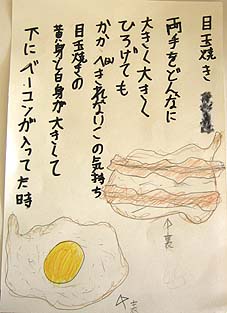 目玉焼き
両手をどんなに
大きく大きく
ひろげても
かかへきれないこの気持ち
目玉焼きの
黄身と白身が大きくて
下にベーコンが入ってた時
↑裏
↑表